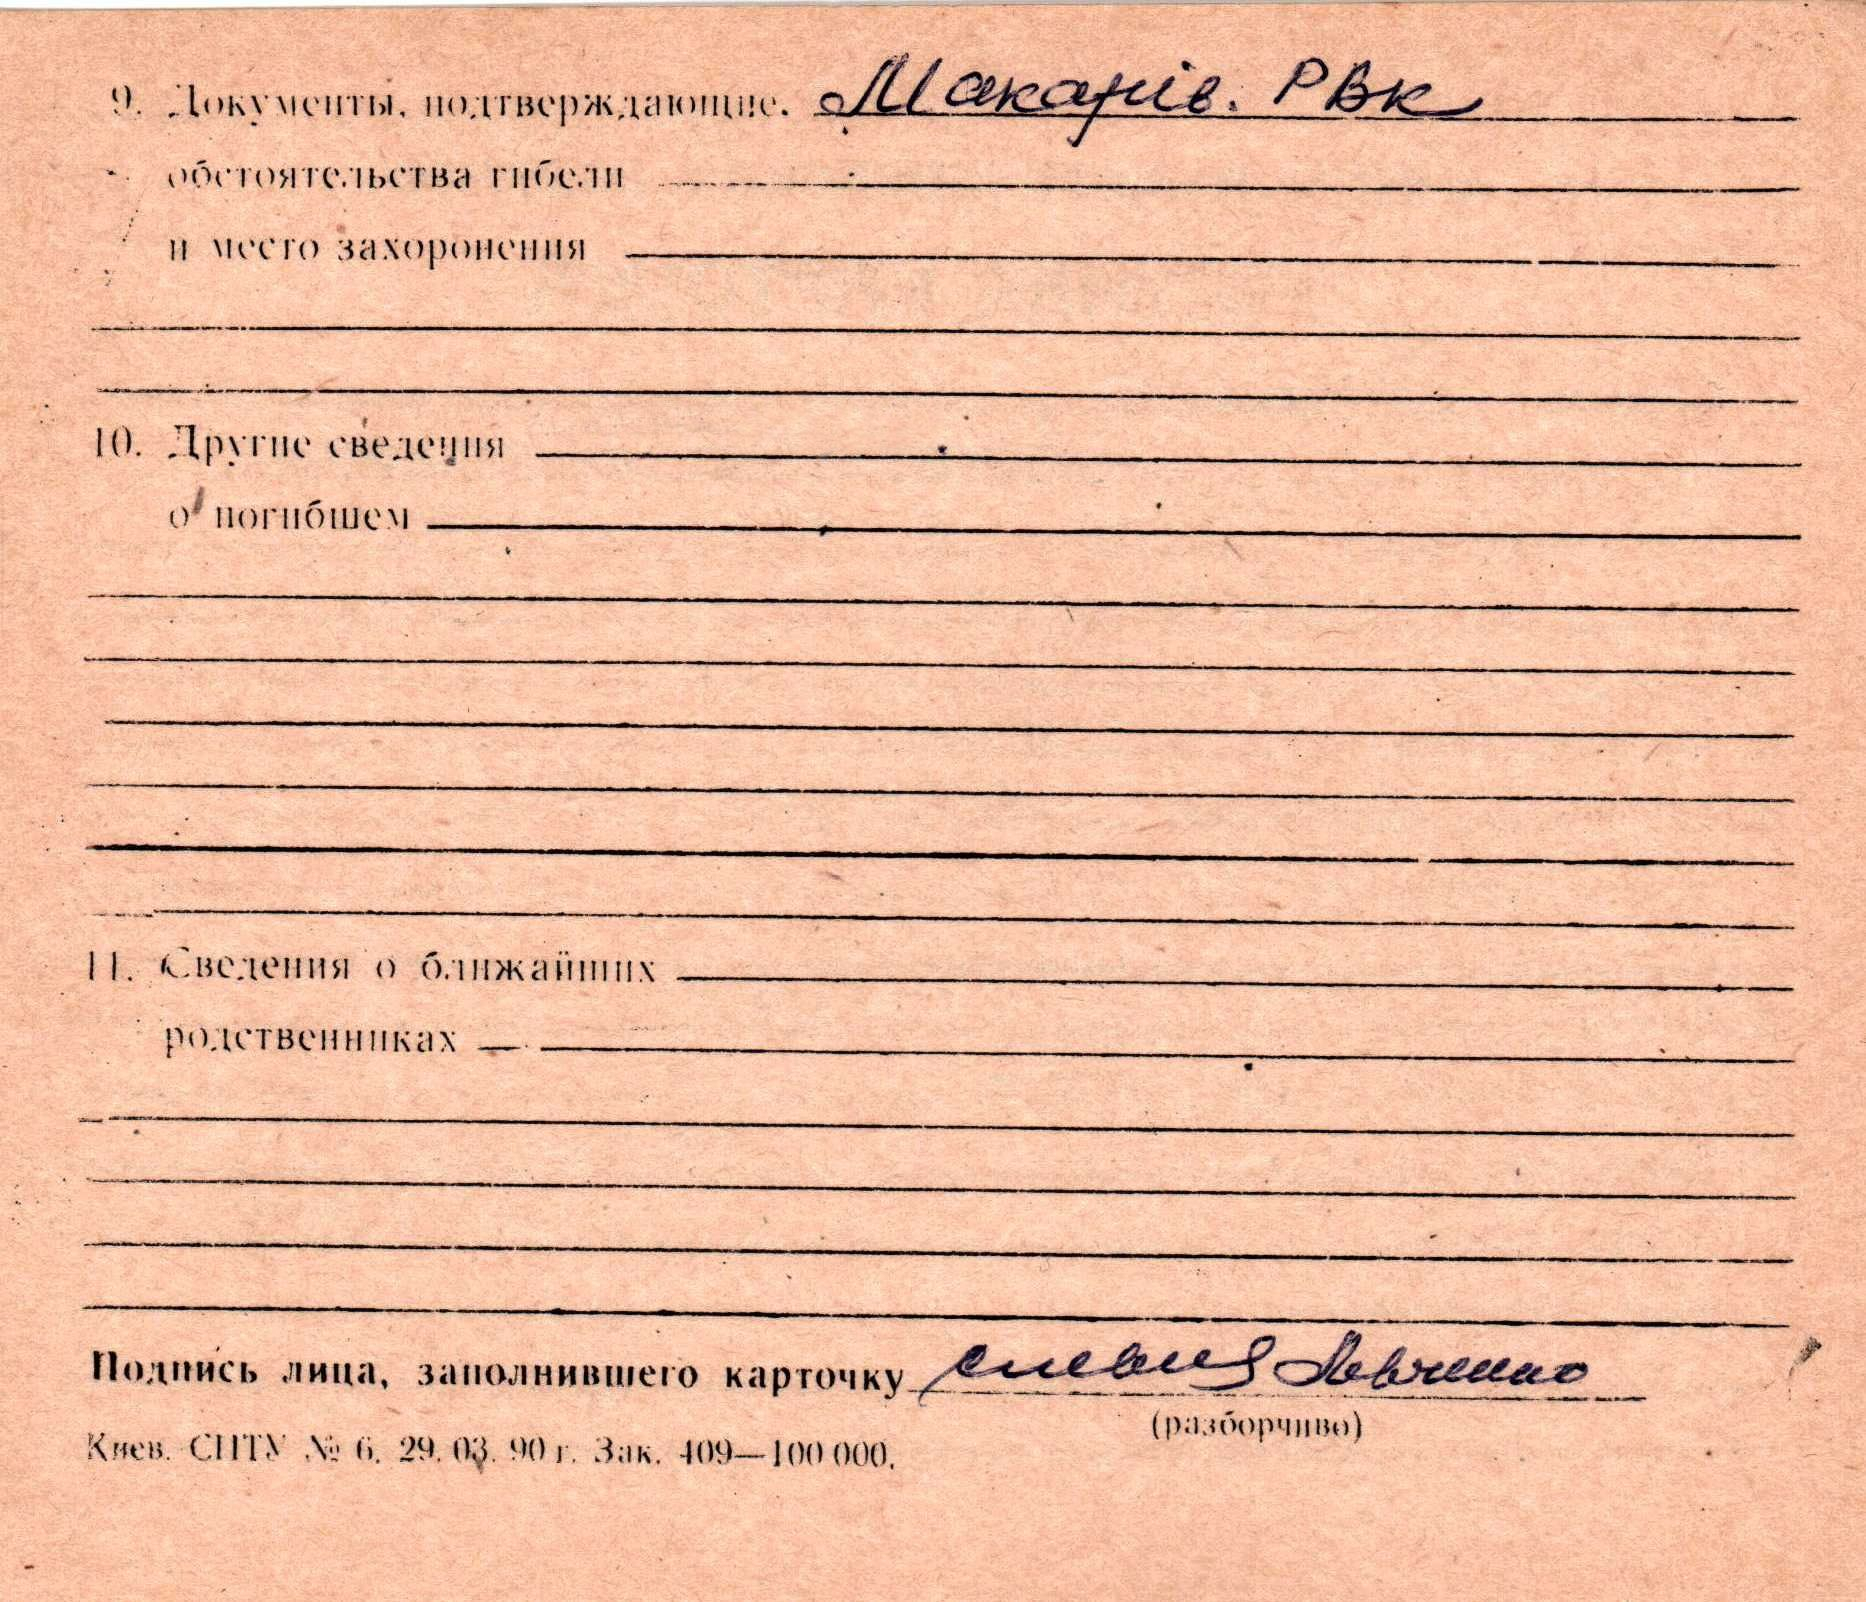 9. Документы, подтверждающие. Макарів. РВК
обстоятельства гибели
и место захоронения
10. Другие сведения
о погибшем
11. Сведения о ближайших
родственниках
Подпись лица, заполнившего карточку Левченко
(разборчиво)
Киев. СПТУ № 6. 29. 03. 90 г. Зак. 409—100 000.